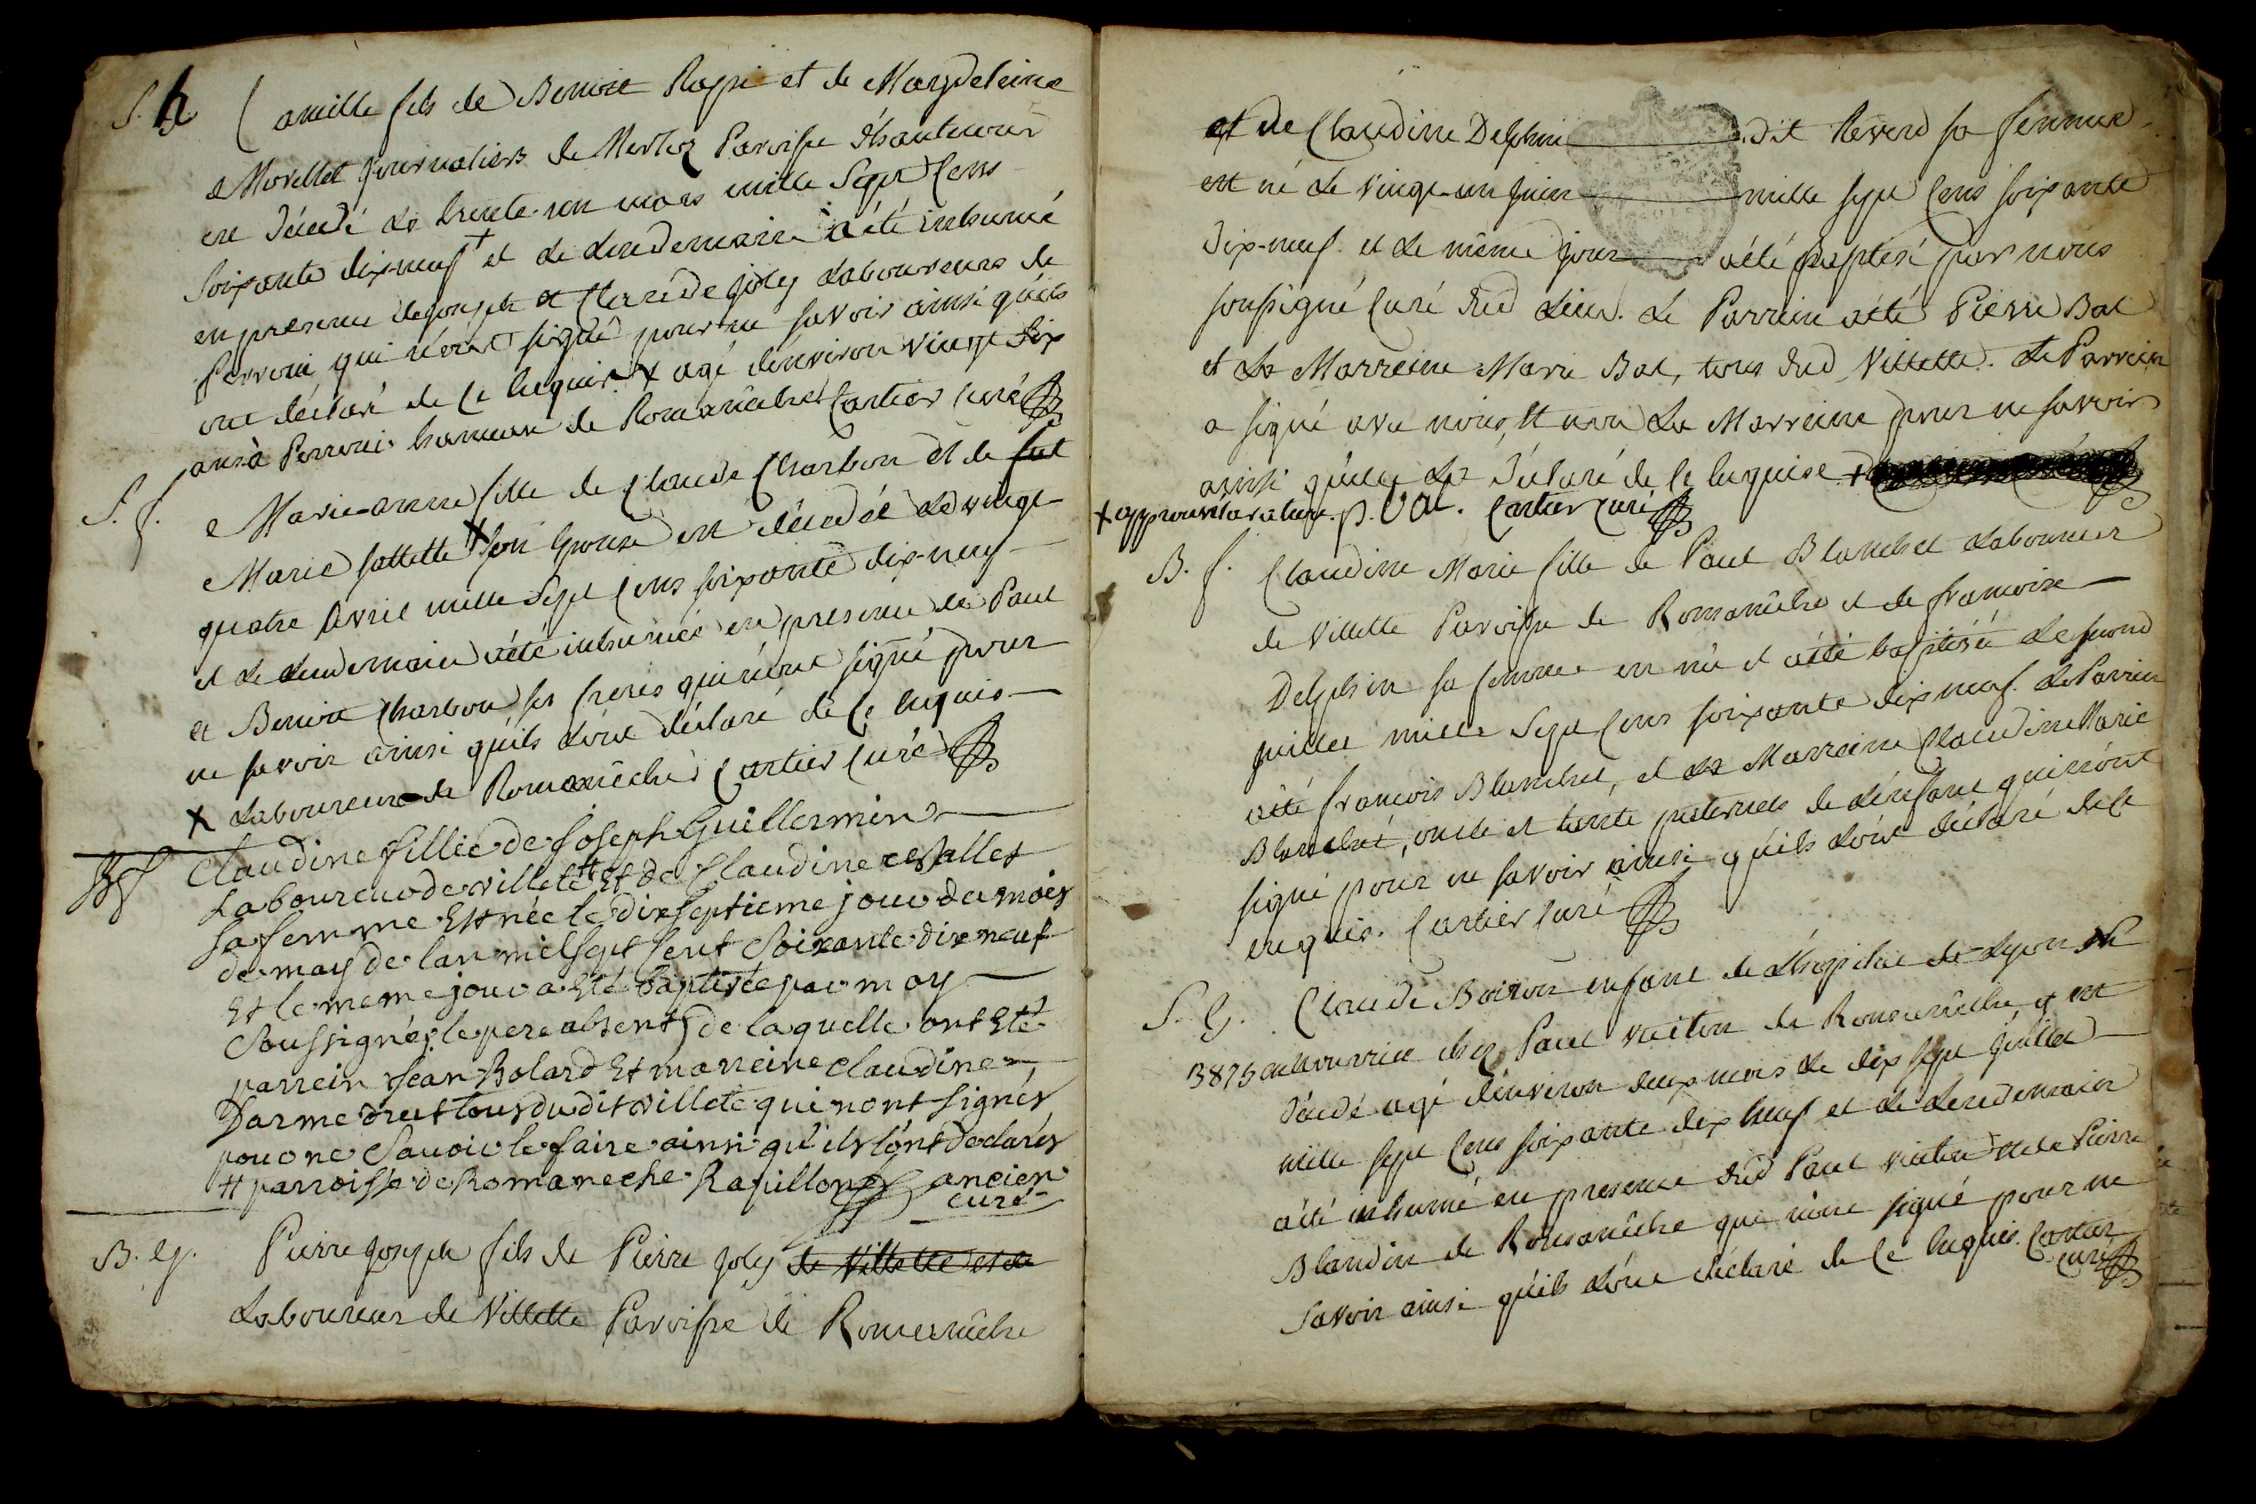 S. h. Camille fils de Benoit Rappi et de Magdeleine
Morellet journaliers de Merloz Paroisse d'hautecour
est décédé le trente-un mars mille Sept Cens
soixante dix-neuf + et le lendemain a été inhumé
en presence de joseph et Claude joly Laboureurs de
Perroni qui n'ont signé pour ne savoir ainsi qu'ils
ont déclaré de ce Enquis. + agé d'environ vingt six
ans à Perroni hameau de Romanêche Cartier Curé
S. f. Marie-anne fille de Claude Charbon et de fut
Marie sallette + son Epouse est décédée le vingt
quatre Avril mille Sept Cens soixante dix-neuf
et le lendemain a été inhumée en presence de Paul
et Benoit Charbon ses freres qui n'ont signé pour
ne savoir ainsi qu'ils l'ont déclaré de ce Enquis
+ Laboureur de Romanêche Cartier Curé
B f Claudine fillie de Joseph Guillermin
Laboureur de villete # Et de Claudine
sa femme Est née le dixseptieme jour du mois
de may de lan mil sept Cent Soixante dix neuf
Et le meme jour a Eté baptisée par moy
Soussignés, le pere absent, de laquelle ont Eté
parrein Jean Bolard Et marreine Claudine
tous dudit villete qui n'ont signés
pour ne Savoir le faire ainsi qu'ils l'ont declarés
# parroisse de Romaneche. Rapillon ancien
curé
B. g. Pierre joseph fils de Pierre joly de Villette et de
Laboureur de Villette Paroisse de Romanêche
et de Claudine Delphin dit Revend sa femme
est né le vingt-un juin mille sept Cens soixante
dix-neuf et le même jour a été baptisé par nous
soussigné Curé dud Lieu. Le Parrein a été Pierre Bal
et La Marreine Marie Bal, tous dud Villette. Le Parrein
a signé avec nous, et non La Marreine pour ne savoir
ainsi qu'elle L'a déclaré de ce Enquise. +
+ approuvé la rature. p. bal. Cartier Curé
B. f. Claudine Marie fille de Paul Blanchet Laboureur
de Villette Paroisse de Romanêche et de francoise
Delphin sa femme est née et a été baptisée le second
juillet mille Sept Cens soixante dix neuf. Le Parrein
a été francois Blanchet, et La Marreine Claudine Marie
Blanchet, oncle et tante paternels de L'enfant qui n'ont
signé pour ne savoir ainsi qu'ils L'ont déclaré de ce
enquis. Cartier Curé
S. g. Claude enfant de L'hopital de Lyon N°
3875 en Nourrice chez Paul de Romanêche, est
décédé agé d'environ deux mois le dix sept juillet
mille sept Cens soixante dix Neuf et le Lendemain
a été inhumé en presence dud Paul et de Pierre
Blandin de Romanêche qui n'ont signé pour ne
savoir ainsi qu'ils L'ont déclaré de ce Enquis. Cartier
Curé